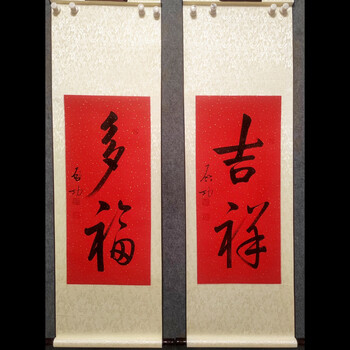 吉祥
启功
多福
启功